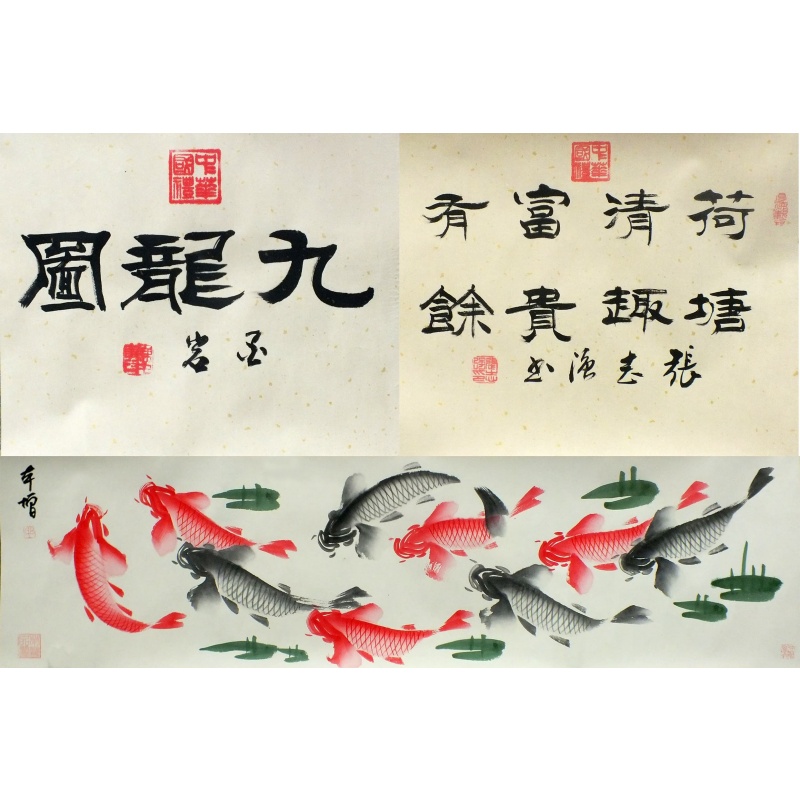 中華
國禮
九龍圖
岩
中華
國禮
荷塘
清趣
富貴
有餘
張志漁書
年增